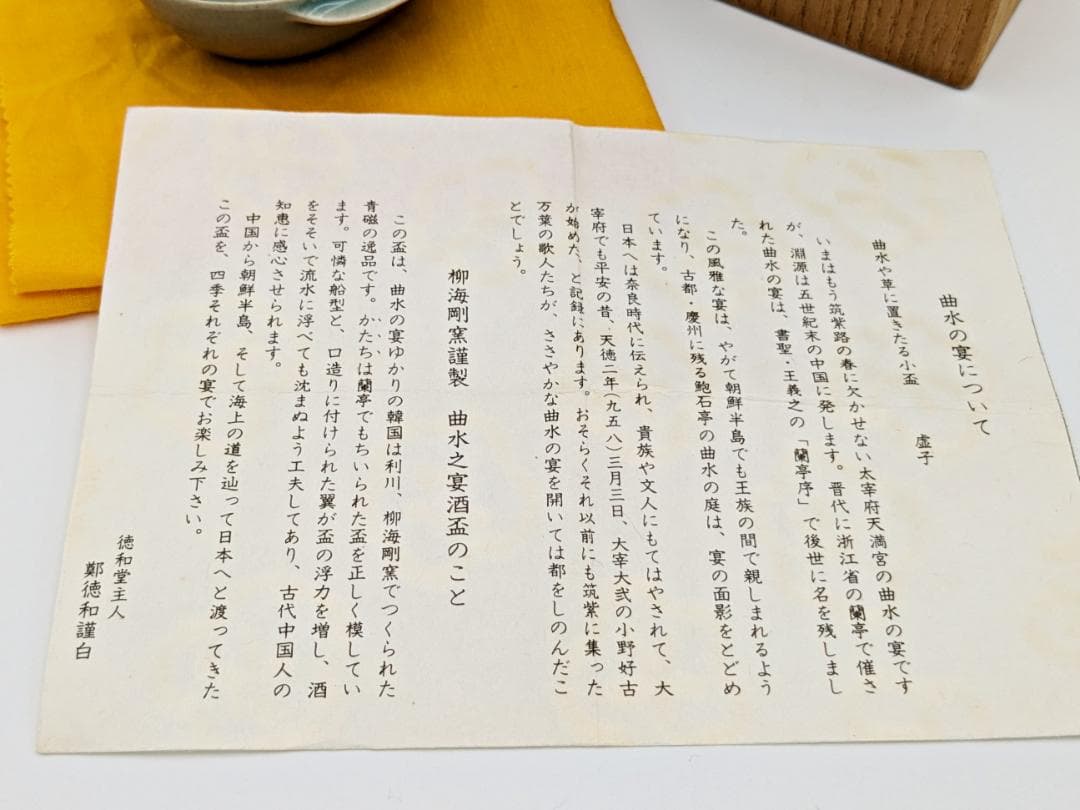 曲水の宴について
曲水や草に置きたる小盃　虚子
いまはもう筑紫路の春に欠かせない太宰府天満宮の曲水の宴です
が、淵源は五世紀末の中国に発します。晋代に浙江省の蘭亭で催さ
れた曲水の宴は、書聖・王義之の「蘭亭序」で後世に名を残しまし
た。
この風雅な宴は、やがて朝鮮半島でも王族の間で親しまれるよう
になり、古都・慶州に残る鮑石亭の曲水の庭は、宴の面影をとどめ
ています。
日本へは奈良時代に伝えられ、貴族や文人にもてはやされて、大
宰府でも平安の昔、天徳二年(九五八)三月三日、大宰大弐の小野好古
が始めた、と記録にあります。おそらくそれ以前にも筑紫に集った
万葉の歌人たちが、ささやかな曲水の宴を開いては都をしのんだこ
とでしょう。
柳海剛窯謹製　曲水之宴酒盃のこと
この盃は、曲水の宴ゆかりの韓国は利川、柳海剛窯でつくられた
青磁の逸品です。かたちは蘭亭でもちいられた盃を正しく模してい
ます。可憐な船型と、口造りに付けられた翼が盃の浮力を増し、酒
をそそいで流水に浮べても沈まぬよう工夫してあり、古代中国人の
知恵に感心させられます。
中国から朝鮮半島、そして海上の道を辿って日本へと渡ってきた
この盃を、四季それぞれの宴でお楽しみ下さい。
徳和堂主人
鄭徳和謹白